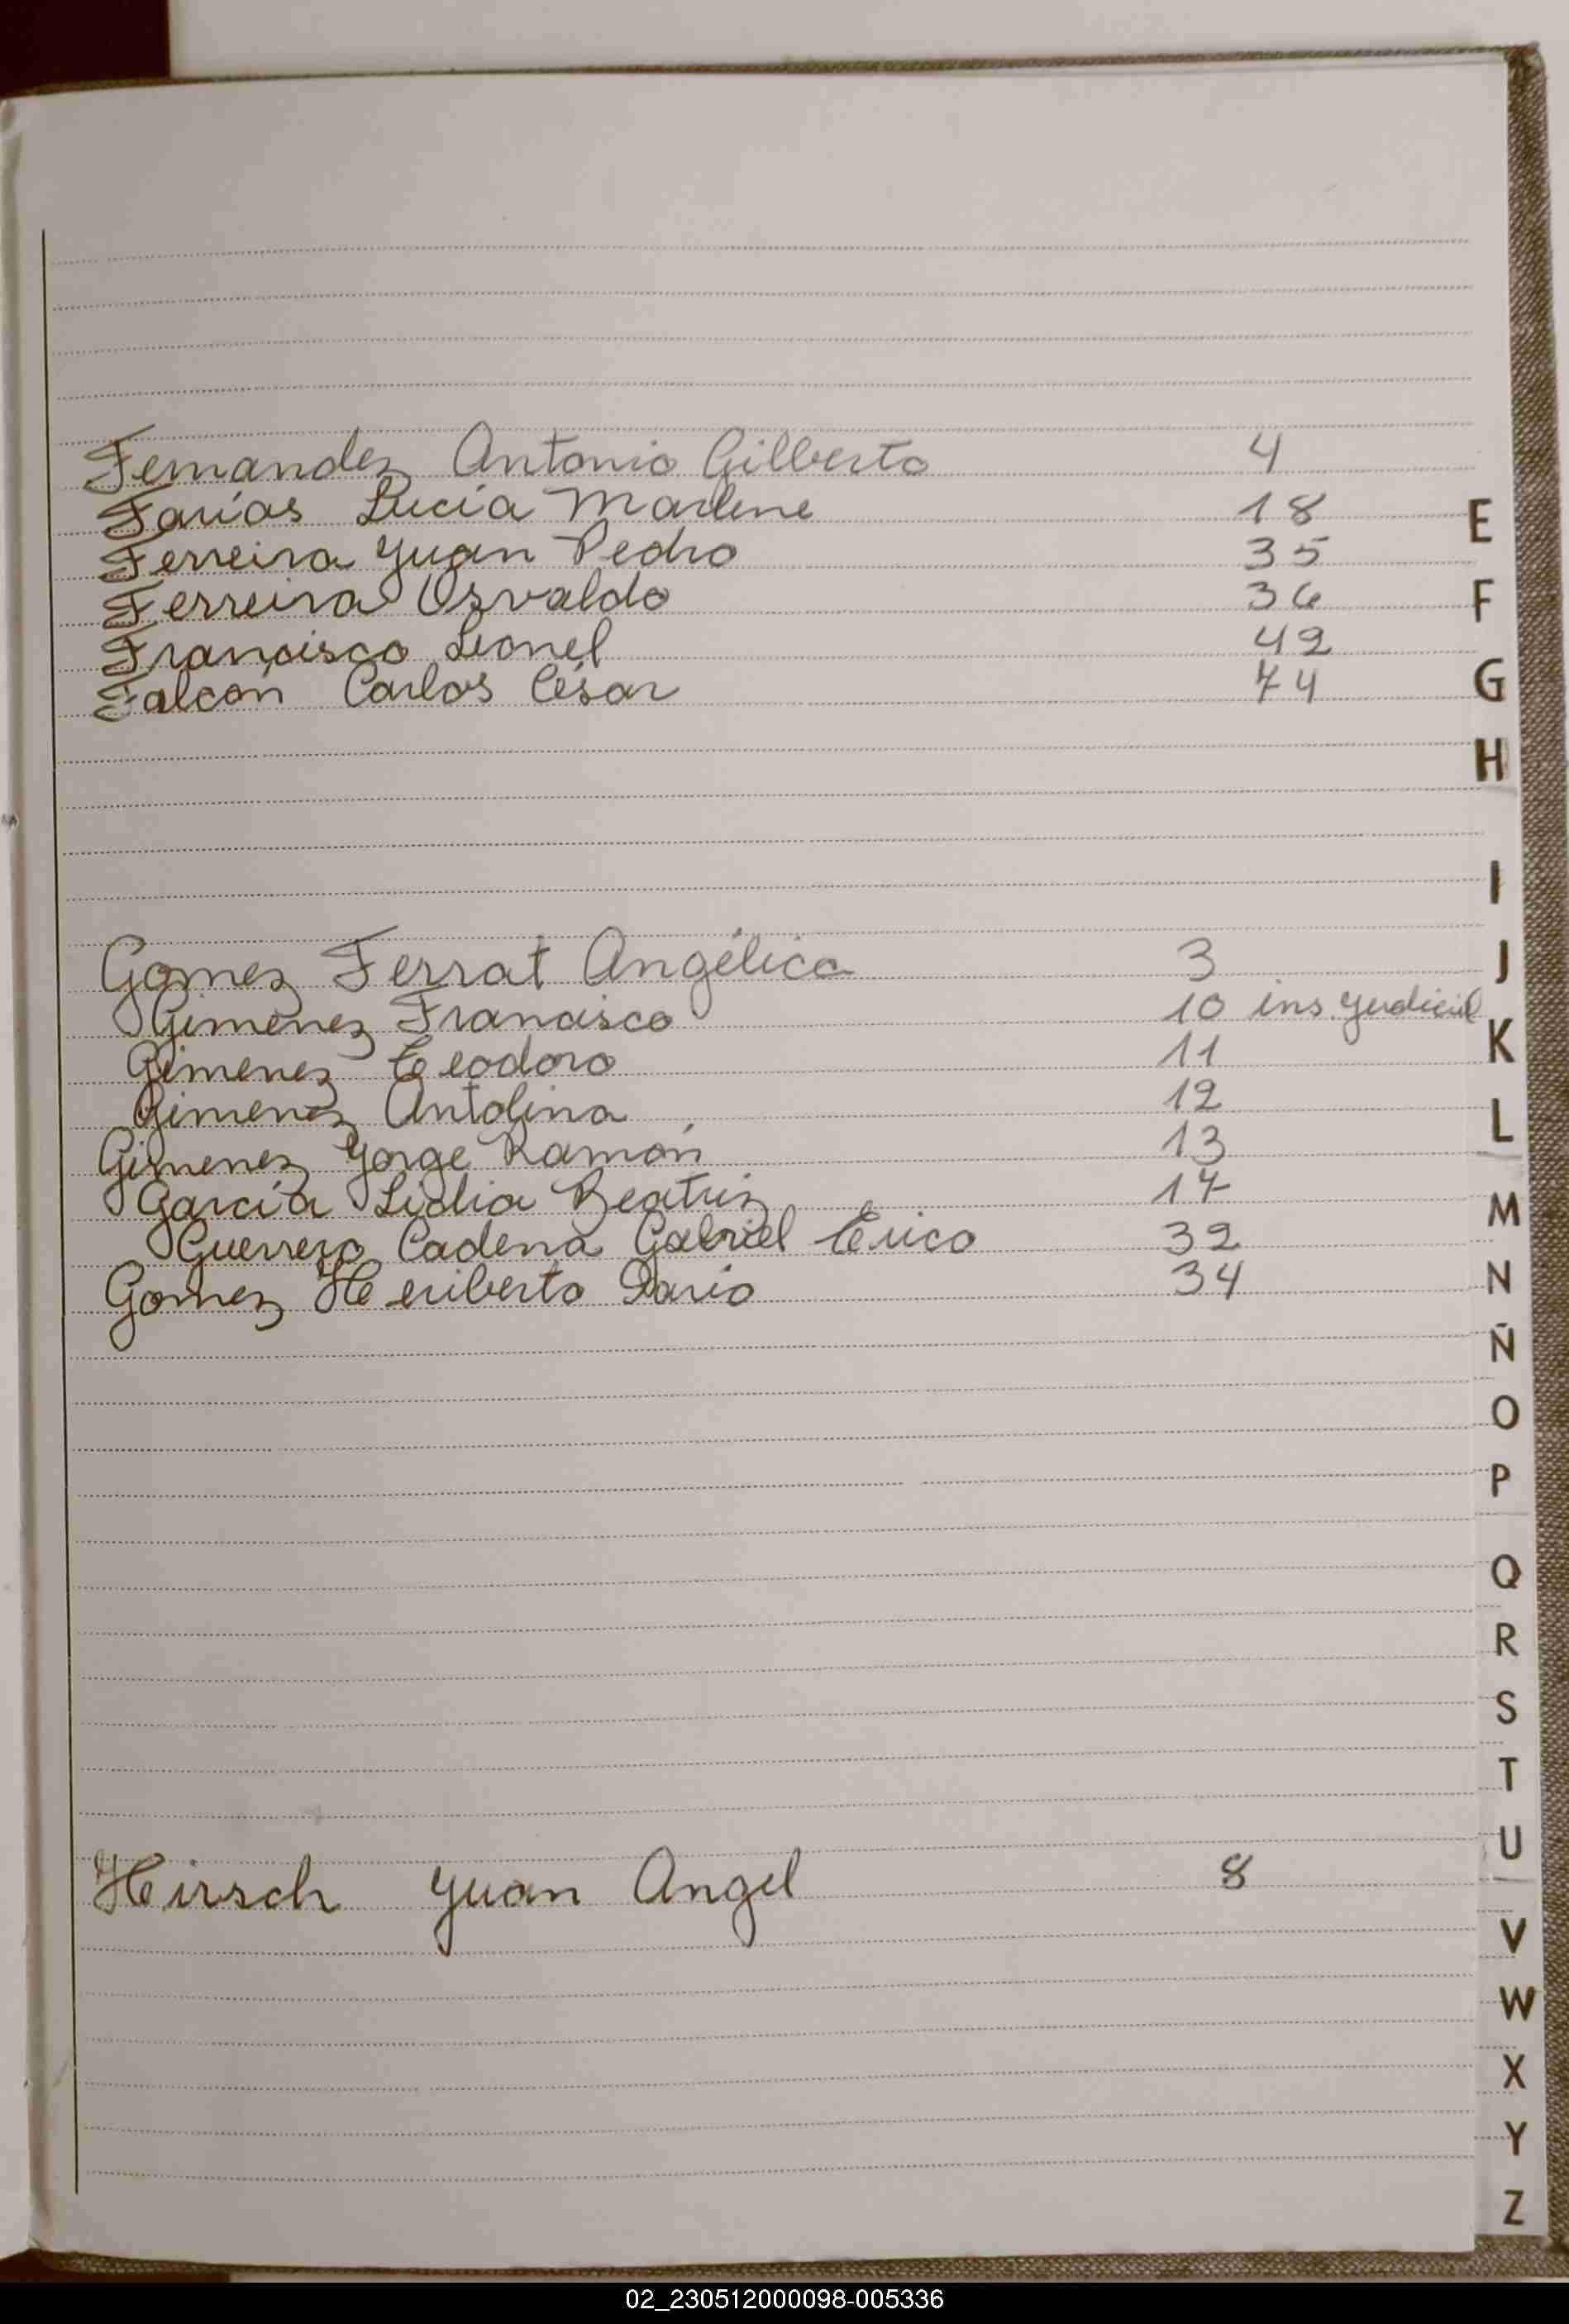 Fernandez Antonio Gilberto 4
Farías Lucía Marlene 18
Ferreira Juan Pedro 35
Ferreira Osvaldo 36
Francisco Lionel 42
Falcón Carlos César 74
Gomez Ferrat Angélica 3
Gimenez Francisco 10 ins. Judicial
Gimenez Teodoro 11
Gimenez Antolina 12
Gimenez Jorge Ramón 13
García Lidia Beatriz 17
Guerrero Cadena Gabriel Erico 32
Gomez Heriberto Dario 34
Hirsch Juan Angel 8
E
F
G
H
I
J
K
L
M
N
Ñ
O
P
Q
R
S
T
U
V
W
X
Y
Z
02_230512000098-005336